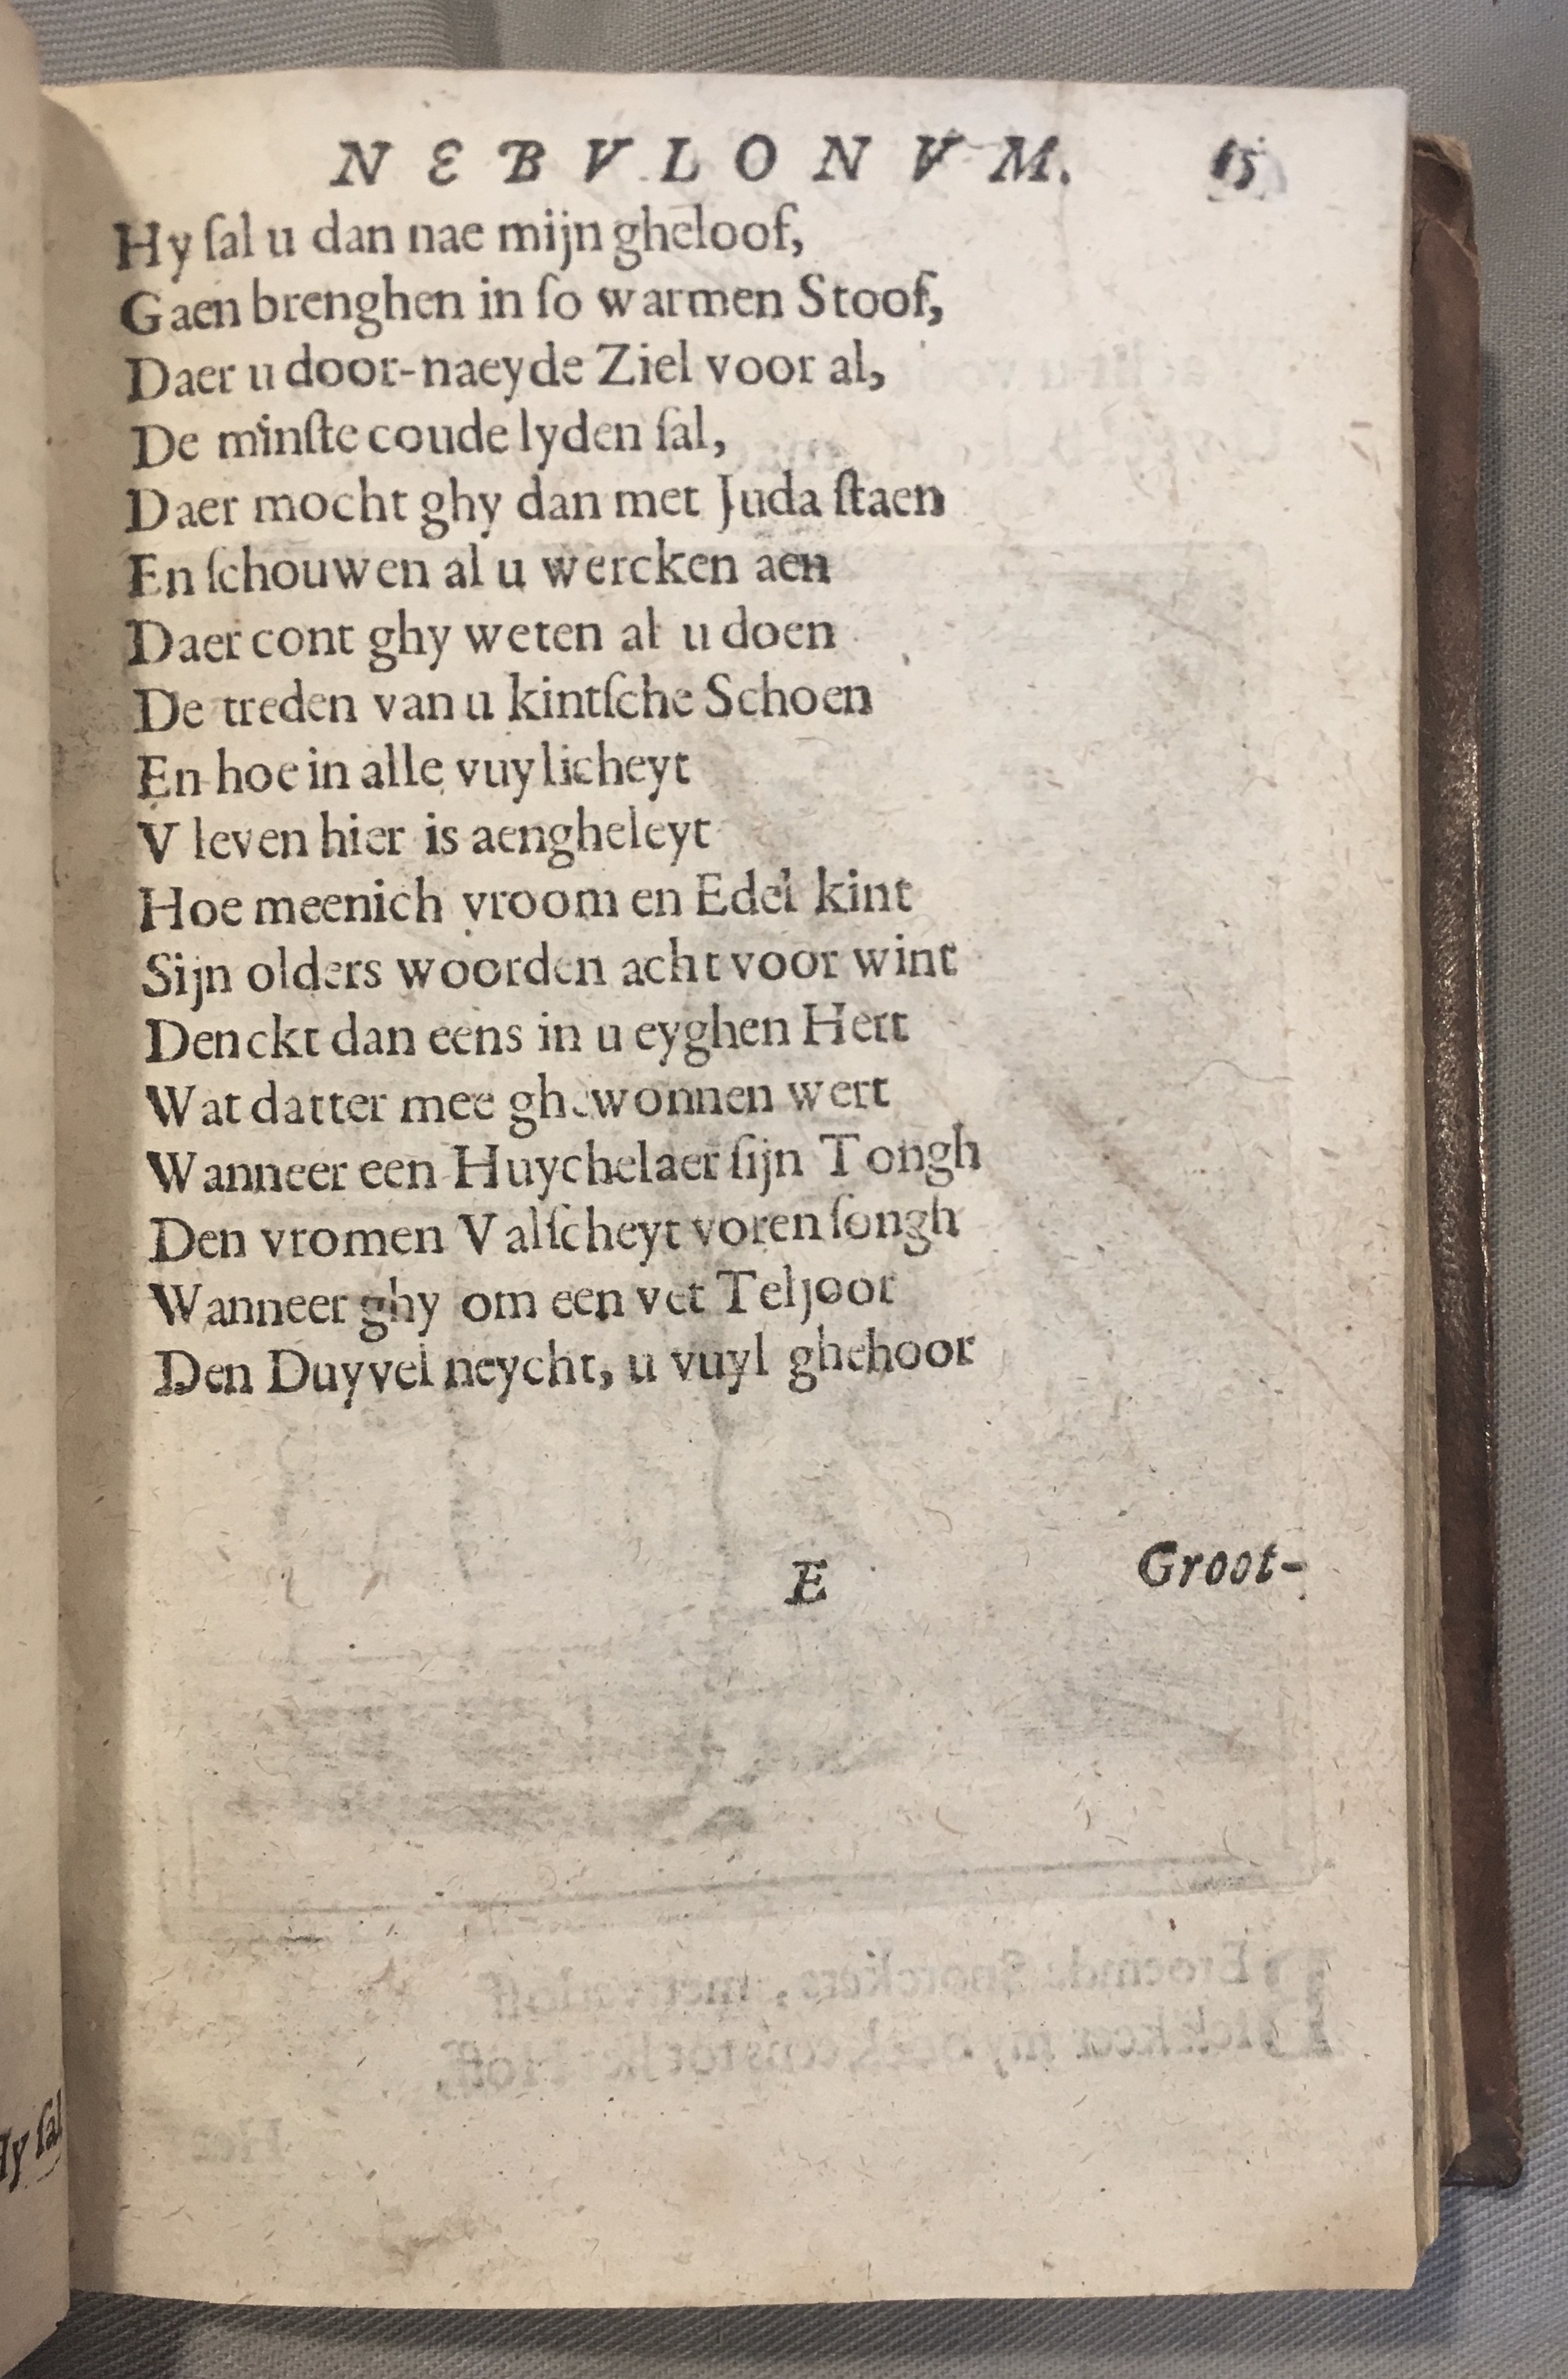 NEBVLONVM. 15
Hy ſal u dan nae mijn gheloof,
Gaen brenghen in ſo warmen Stoof,
Daer u door-naeyde Ziel voor al,
De minſte coude lyden ſal,
Daer mocht ghy dan met Juda ſtaen
En ſchouwen al u wercken aen
Daer cont ghy weten al u doen
De treden van u kintſche Schoen
En hoe in alle vuylicheyt
V leven hier is aengheleyt
Hoe meenich vroom en Edel kint
Sijn olders woorden acht voor wint
Denckt dan eens in u eyghen Hert
Wat datter mee ghewonnen wert
Wanneer een Huychelaer ſijn Tongh
Den vromen Valſcheyt voren ſongh
Wanneer ghy om een vet Teljoor
Den Duyvel neycht, u vuyl ghehoor
E Groot-
Hy ſal